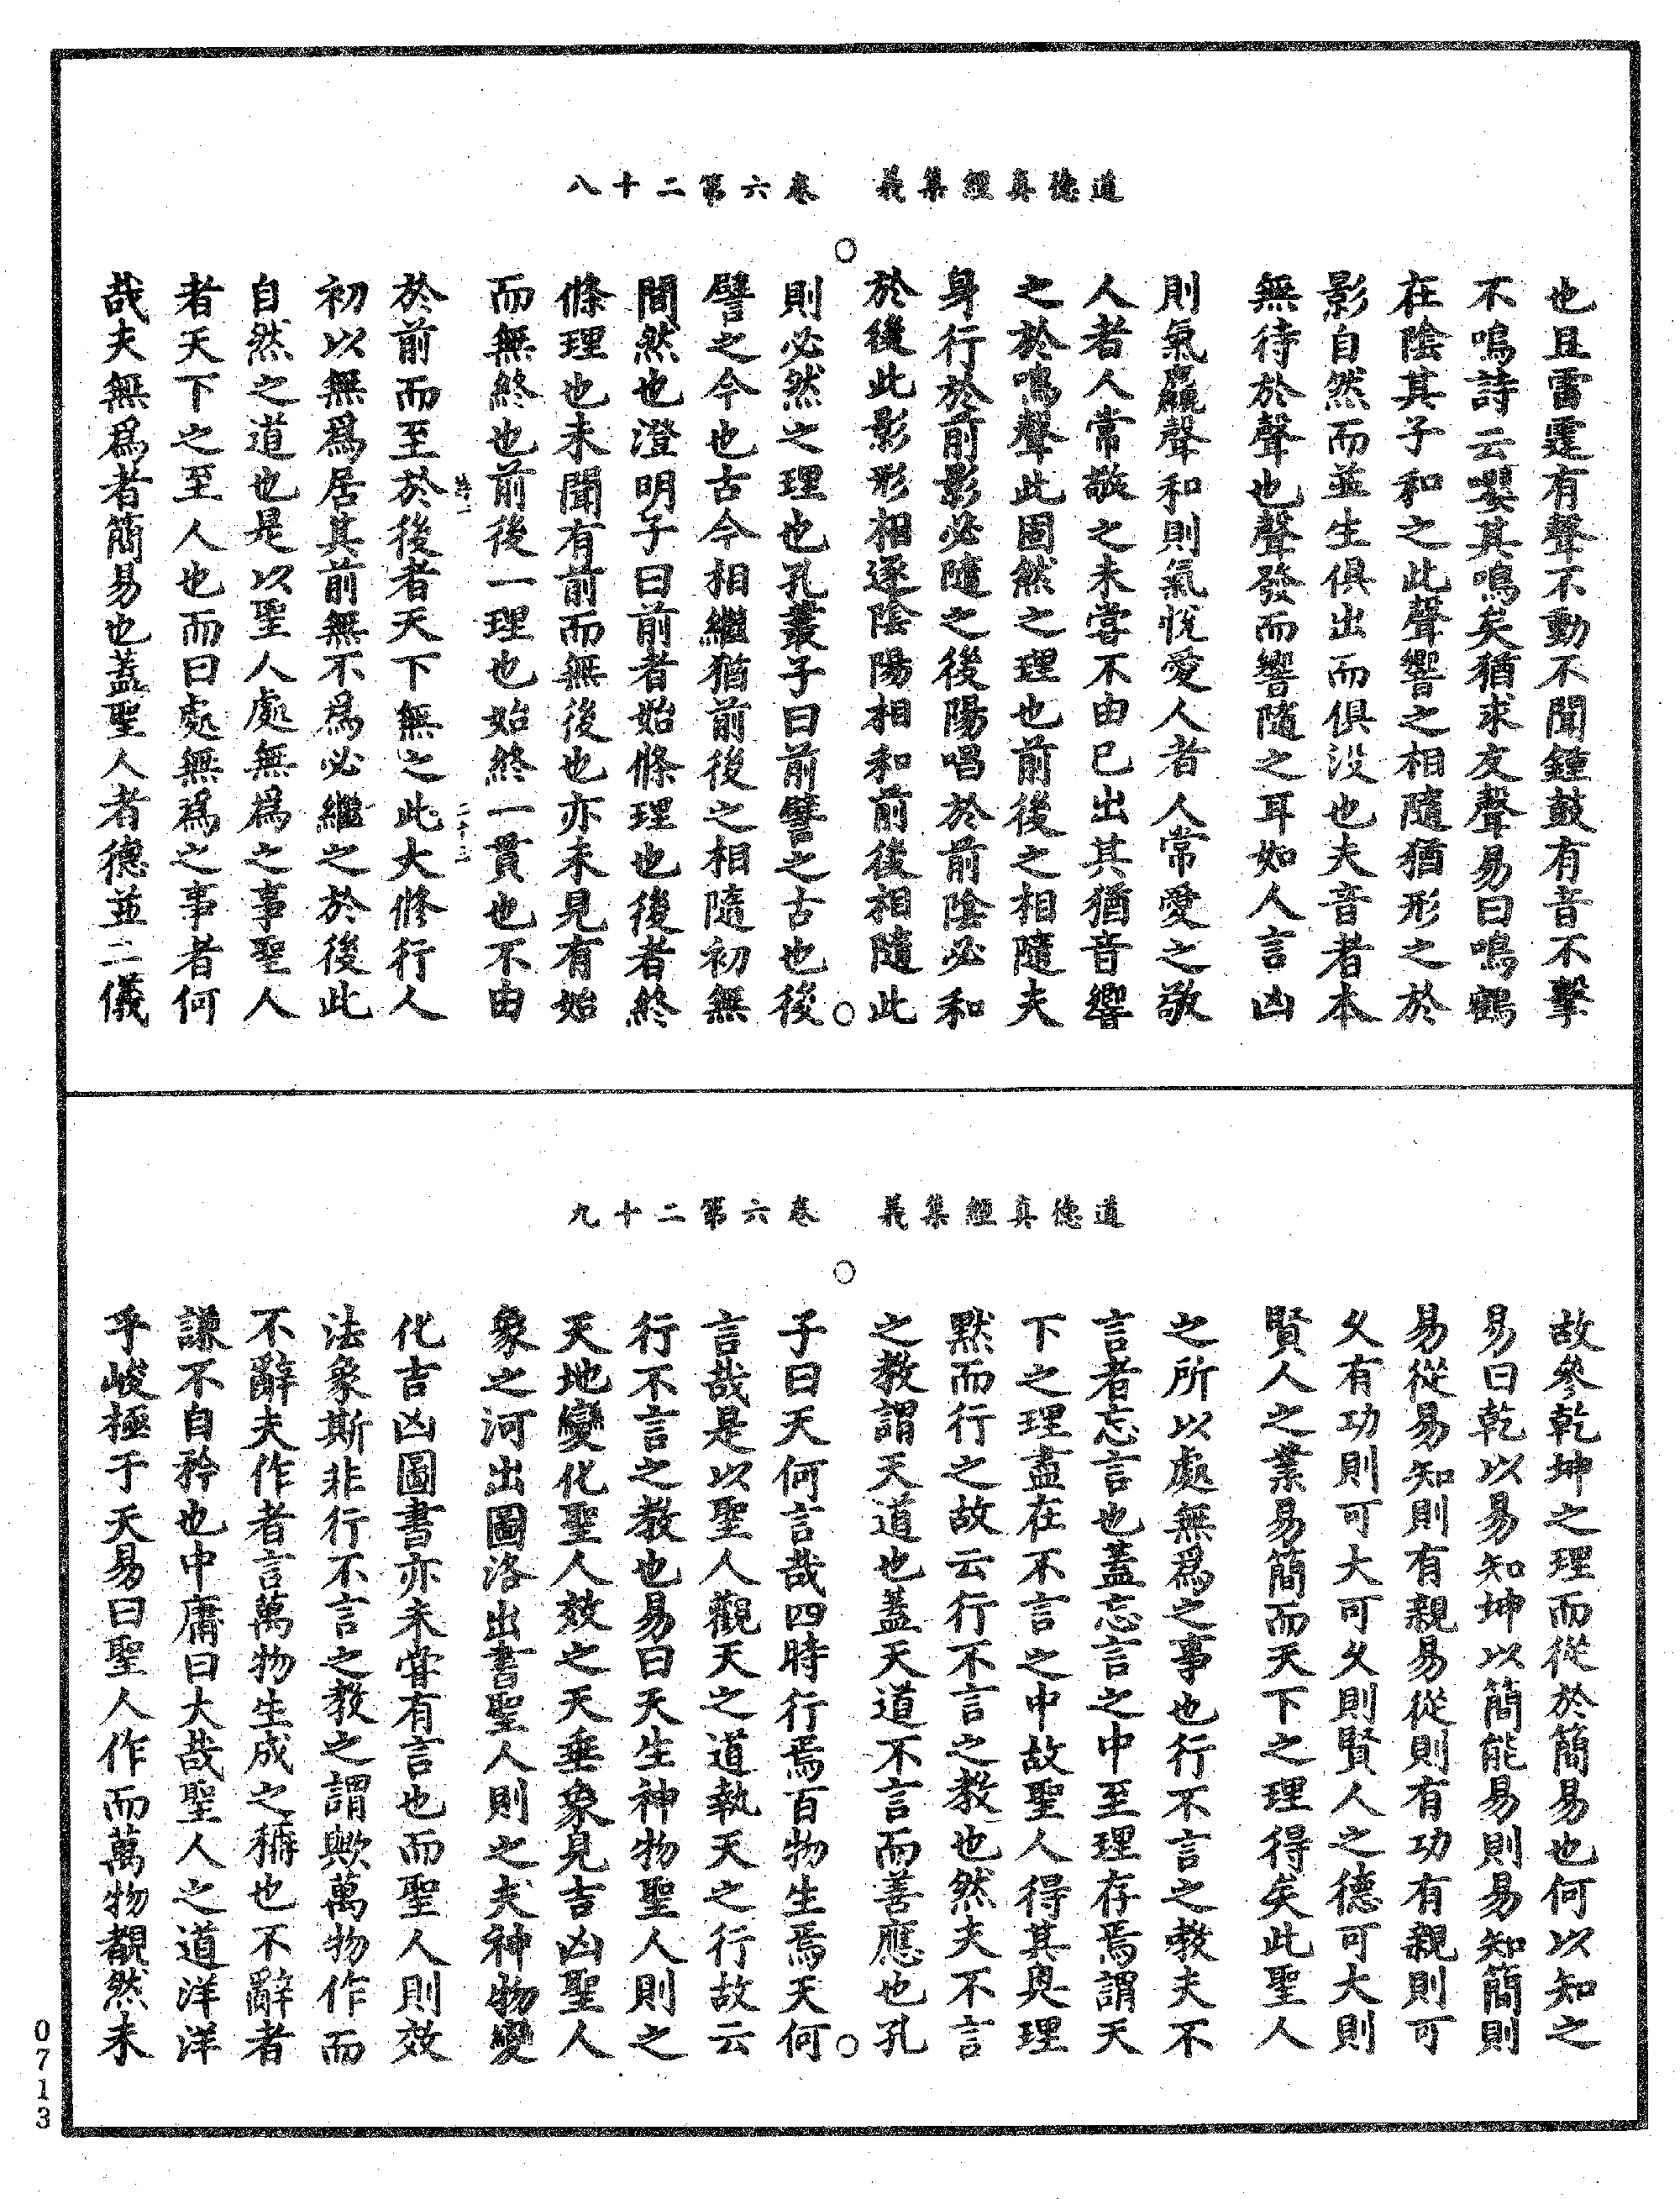 道德真經集義　卷六第二十八
也且雷霆有聲不動不聞鍾鼓有音不擊
不鳴詩云嚶其鳴矣猶求友聲易曰鳴鶴
在陰其子和之此聲響之相隨猶形之於
影自然而並生俱出而俱没也夫音者本
無待於聲也聲發而響隨之耳如人言凶
則氣麤聲和則氣悅愛人者人常愛之敬
人者人常敬之未嘗不由已出其猶音響
之於鳴聲此固然之理也前後之相隨夫
身行於前影必隨之後陽唱於前陰必和
於後此影形相逐陰陽相和前後相隨此
則必然之理也孔叢子曰前譬之古也後
譬之今也古今相繼猶前後之相隨初無
間然也澄明子曰前者始條理也後者終
條理也未聞有前而無後也亦未見有始
而無終也前後一理也始終一貫也不由
於前而至於後者天下無之此大修行人
初以無爲居其前無不爲必繼之於後此
自然之道也是以聖人處無爲之事聖人
者天下之至人也而曰處無爲之事者何
哉夫無爲者簡易也蓋聖人者德並二儀
道德真經集義　卷六第二十九
故參乾坤之理而從於簡易也何以知之
易曰乾以易知坤以簡能易則易知簡則
易從易知則有親易從則有功有親則可
久有功則可大可久則賢人之德可大則
賢人之業易簡而天下之理得矣此聖人
之所以處無爲之事也行不言之教夫不
言者忘言也蓋忘言之中至理存焉謂天
下之理盡在不言之中故聖人得其奥理
默而行之故云行不言之教也然夫不言
之教謂天道也蓋天道不言而善應也孔
子曰天何言哉四時行焉百物生焉天何
言哉是以聖人觀天之道執天之行故云
行不言之教也易曰天生神物聖人則之
天地變化聖人效之天垂象見吉凶聖人
象之河出圖洛出書聖人則之夫神物變
化吉凶圖書亦未嘗有言也而聖人則效
法象斯非行不言之教之謂歟萬物作而
不辭夫作者言萬物生成之稱也不辭者
謙不自矜也中庸曰大哉聖人之道洋洋
乎峻極于天易曰聖人作而萬物覩然未
0713